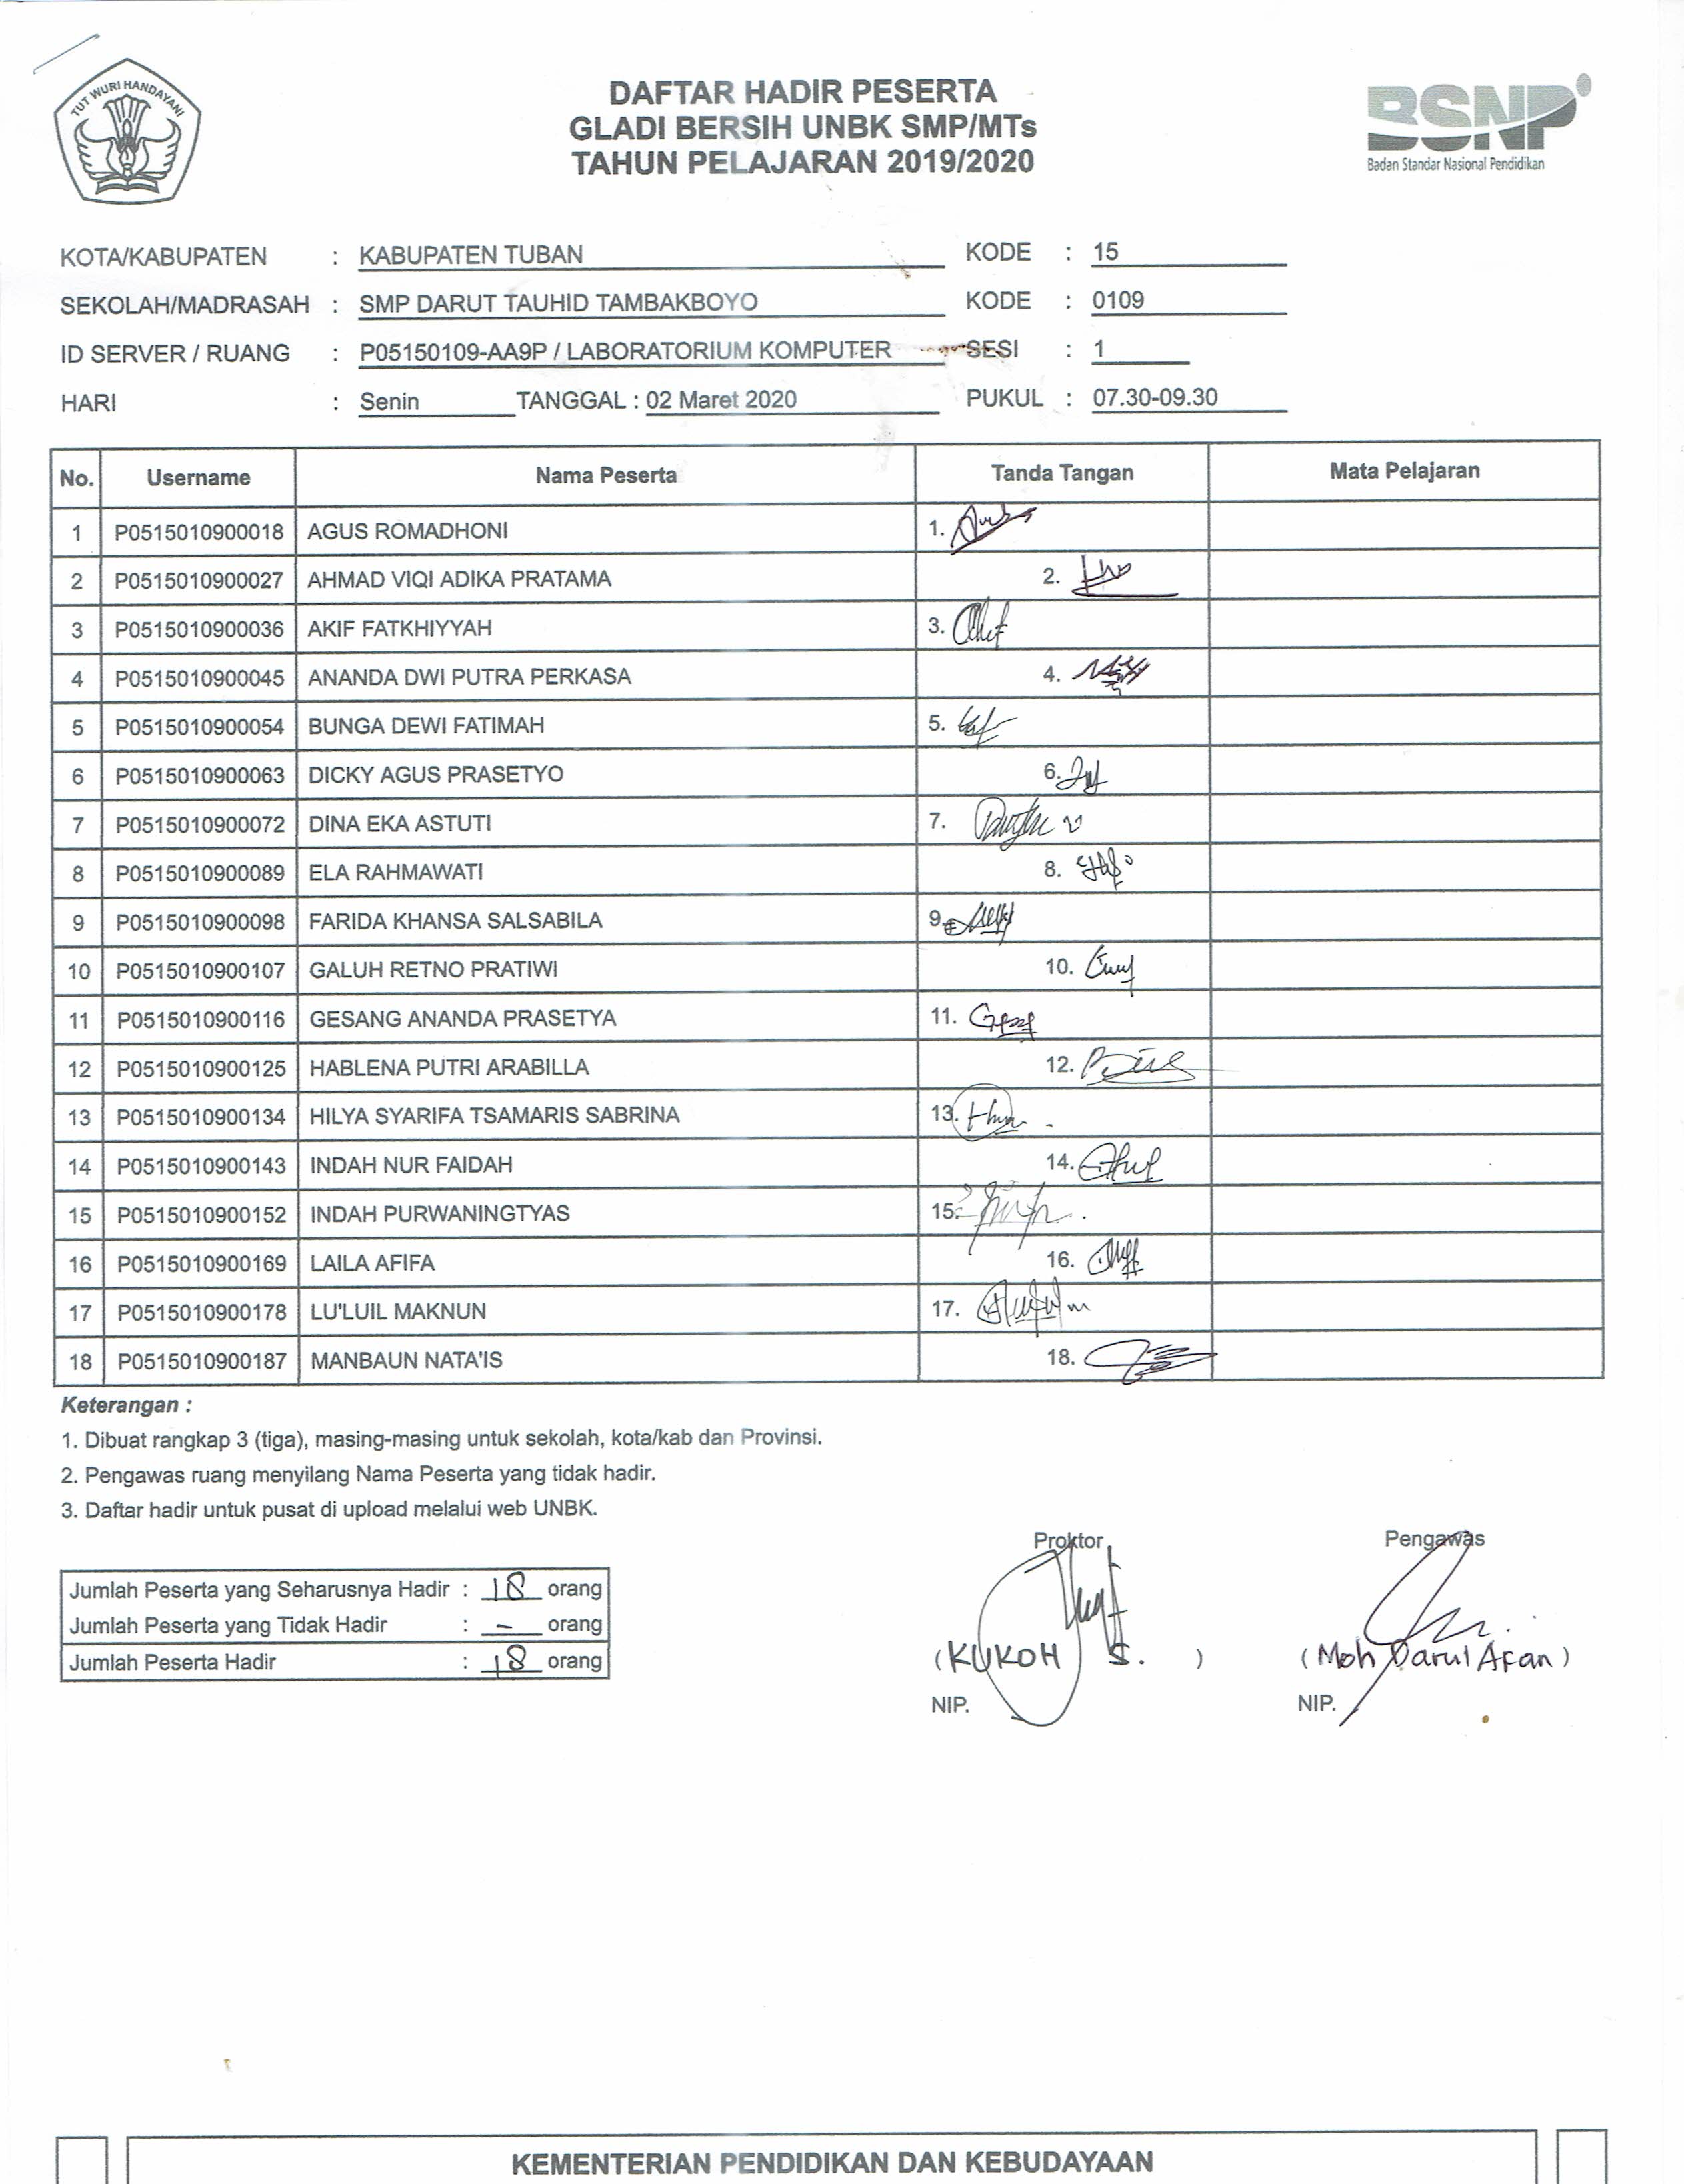 TUT WURI HANDAYANI
DAFTAR HADIR PESERTA
GLADI BERSIH UNBK SMP/MTs
TAHUN PELAJARAN 2019/2020
BSNP
Badan Standar Nasional Pendidikan
KOTA/KABUPATEN : KABUPATEN TUBAN KODE : 15
SEKOLAH/MADRASAH : SMP DARUT TAUHID TAMBAKBOYO KODE : 0109
ID SERVER / RUANG : P05150109-AA9P / LABORATORIUM KOMPUTER SESI : 1
HARI : Senin TANGGAL : 02 Maret 2020 PUKUL : 07.30-09.30
No. Username Nama Peserta Tanda Tangan Mata Pelajaran
1 P0515010900018 AGUS ROMADHONI 1.
2 P0515010900027 AHMAD VIQI ADIKA PRATAMA 2.
3 P0515010900036 AKIF FATKHIYYAH 3.
4 P0515010900045 ANANDA DWI PUTRA PERKASA 4.
5 P0515010900054 BUNGA DEWI FATIMAH 5.
6 P0515010900063 DICKY AGUS PRASETYO 6.
7 P0515010900072 DINA EKA ASTUTI 7.
8 P0515010900089 ELA RAHMAWATI 8.
9 P0515010900098 FARIDA KHANSA SALSABILA 9.
10 P0515010900107 GALUH RETNO PRATIWI 10.
11 P0515010900116 GESANG ANANDA PRASETYA 11.
12 P0515010900125 HABLENA PUTRI ARABILLA 12.
13 P0515010900134 HILYA SYARIFA TSAMARIS SABRINA 13.
14 P0515010900143 INDAH NUR FAIDAH 14.
15 P0515010900152 INDAH PURWANINGTYAS 15.
16 P0515010900169 LAILA AFIFA 16.
17 P0515010900178 LU'LUIL MAKNUN 17.
18 P0515010900187 MANBAUN NATA'IS 18.
Keterangan :
1. Dibuat rangkap 3 (tiga), masing-masing untuk sekolah, kota/kab dan Provinsi.
2. Pengawas ruang menyilang Nama Peserta yang tidak hadir.
3. Daftar hadir untuk pusat di upload melalui web UNBK.
Proktor Pengawas
Jumlah Peserta yang Seharusnya Hadir : 18 orang
Jumlah Peserta yang Tidak Hadir : - orang
Jumlah Peserta Hadir : 18 orang
(KUKOH S. ) (Moh Darul Afan)
NIP. NIP.
KEMENTERIAN PENDIDIKAN DAN KEBUDAYAAN